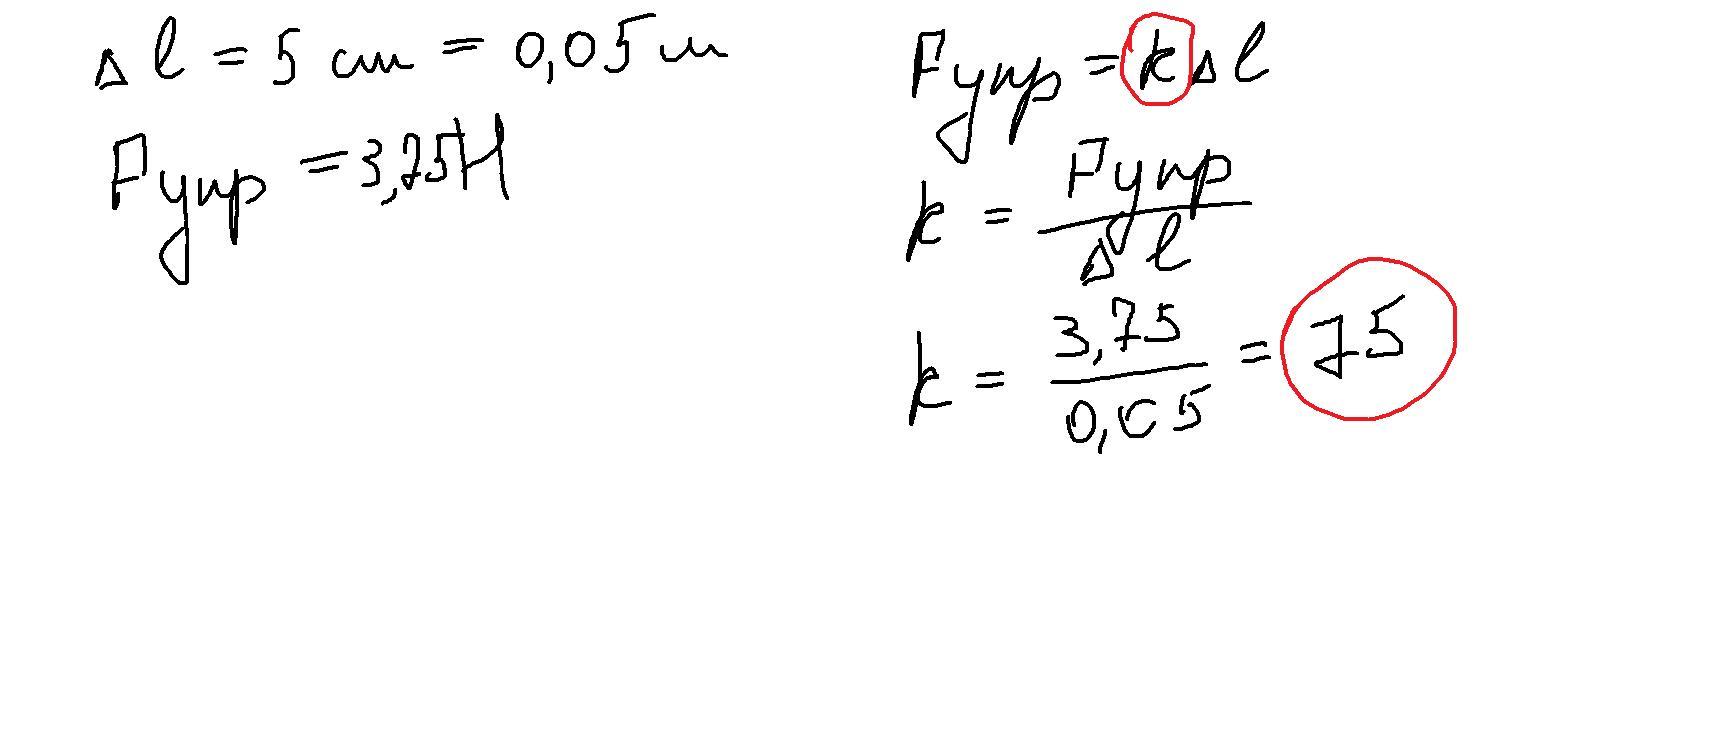 Δl = 5 см = 0,05 м
Fупр = 3,75Н
Fупр = kΔl
k = Fупр / Δl
k = 3,75 / 0,05 = 75